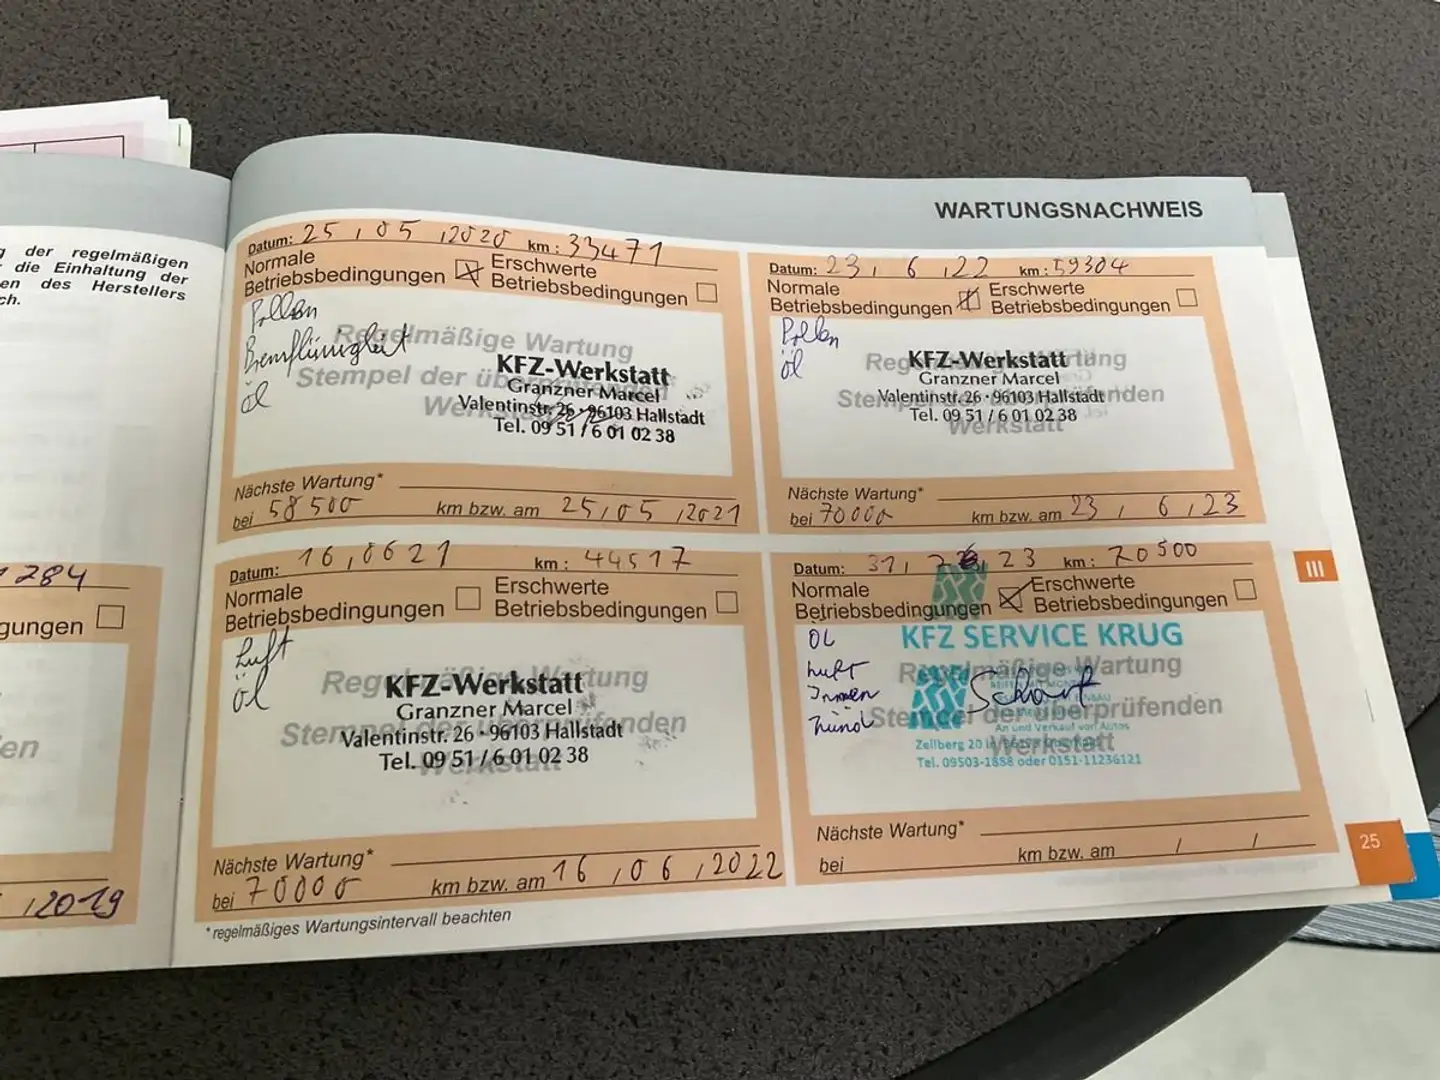 g der regelmäßigen
die Einhaltung der
en des Herstellers
ch.
284
gungen
en
, 2019
WARTUNGSNACHWEIS
Datum: 25 , 05 , 2020 km : 33471
Normale
Betriebsbedingungen
Erschwerte
Betriebsbedingungen
Pollen
Bremflüssigkeit
öl
Regelmäßige Wartung
Stempel der überprüfenden
Werkstatt
KFZ-Werkstatt
Granzner Marcel
Valentinstr. 26 · 96103 Hallstadt
Tel. 09 51 / 6 01 02 38
Nächste Wartung*
bei 58500 km bzw. am 25 , 05 , 2021
Datum: 23 , 6 , 22 km : 59304
Normale
Betriebsbedingungen
Erschwerte
Betriebsbedingungen
Pollen
öl
Regelmäßige Wartung
Stempel der überprüfenden
Werkstatt
KFZ-Werkstatt
Granzner Marcel
Valentinstr. 26 · 96103 Hallstadt
Tel. 09 51 / 6 01 02 38
Nächste Wartung*
bei 70000 km bzw. am 23 , 6 , 23
Datum: 16 , 06 21 km : 44517
Normale
Betriebsbedingungen
Erschwerte
Betriebsbedingungen
Luft
öl
Regelmäßige Wartung
Stempel der überprüfenden
Werkstatt
KFZ-Werkstatt
Granzner Marcel
Valentinstr. 26 · 96103 Hallstadt
Tel. 09 51 / 6 01 02 38
Nächste Wartung*
bei 70000 km bzw. am 16 , 06 , 2022
Datum: 31 , 7 , 23 km : 70500
Normale
Betriebsbedingungen
Erschwerte
Betriebsbedingungen
ÖL
Luft
Innen
Zünd
KFZ SERVICE KRUG
Regelmäßige Wartung
Stempel der überprüfenden
Werkstatt
An und Verkauf von Autos
Zellberg 20
Tel. 09503-1888 oder 0151-11236121
Nächste Wartung*
bei km bzw. am / /
*regelmäßiges Wartungsintervall beachten
III
25